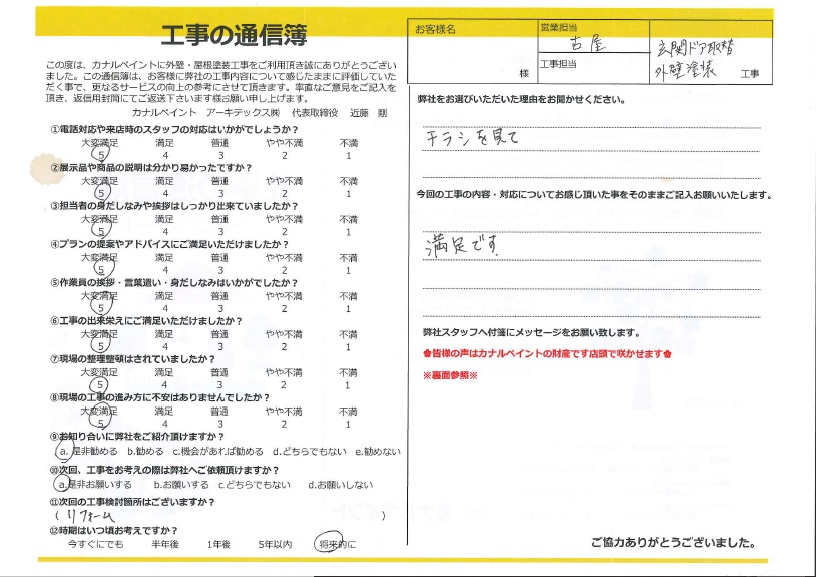 工事の通信簿
この度は、カナルペイントに外壁・屋根塗装工事をご利用頂き誠にありがとうござい
ました。この通信簿は、お客様に弊社の工事内容について感じたままに評価していた
だく事で、更なるサービスの向上の参考にさせて頂きます。率直なご意見をご記入を
頂き、返信用封筒にてご返送下さいます様お願い申し上げます。
カナルペイント アーキテックス㈱ 代表取締役 近藤 剛
①電話対応や来店時のスタッフの対応はいかがでしょうか？
大変満足 満足 普通 やや不満 不満
5 4 3 2 1
②展示品や商品の説明は分かり易かったですか？
大変満足 満足 普通 やや不満 不満
5 4 3 2 1
③担当者の身だしなみや挨拶はしっかり出来ていましたか？
大変満足 満足 普通 やや不満 不満
5 4 3 2 1
④プランの提案やアドバイスにご満足いただけましたか？
大変満足 満足 普通 やや不満 不満
5 4 3 2 1
⑤作業員の挨拶・言葉遣い・身だしなみはいかがでしたか？
大変満足 満足 普通 やや不満 不満
5 4 3 2 1
⑥工事の出来栄えにご満足いただけましたか？
大変満足 満足 普通 やや不満 不満
5 4 3 2 1
⑦現場の整理整頓はされていましたか？
大変満足 満足 普通 やや不満 不満
5 4 3 2 1
⑧現場の工事の進み方に不安はありませんでしたか？
大変満足 満足 普通 やや不満 不満
5 4 3 2 1
⑨お知り合いに弊社をご紹介頂けますか？
a.是非勧める b.勧める c.機会があれば勧める d.どちらでもない e.勧めない
⑩次回、工事をお考えの際は弊社へご依頼頂けますか？
a.是非お願いする b.お願いする c.どちらでもない d.お願いしない
⑪次回の工事検討箇所はございますか？
( リフォーム )
⑫時期はいつ頃お考えですか？
今すぐにでも 半年後 1年後 5年以内 将来的に
お客様名
様
営業担当
古屋
工事担当
玄関ドア取替
外壁塗装 工事
弊社をお選びいただいた理由をお聞かせください。
チラシを見て
今回の工事の内容・対応についてお感じ頂いた事をそのままご記入お願いいたします。
満足です.
弊社スタッフへ付箋にメッセージをお願い致します。
✿皆様の声はカナルペイントの財産です店頭で咲かせます✿
※裏面参照※
ご協力ありがとうございました。